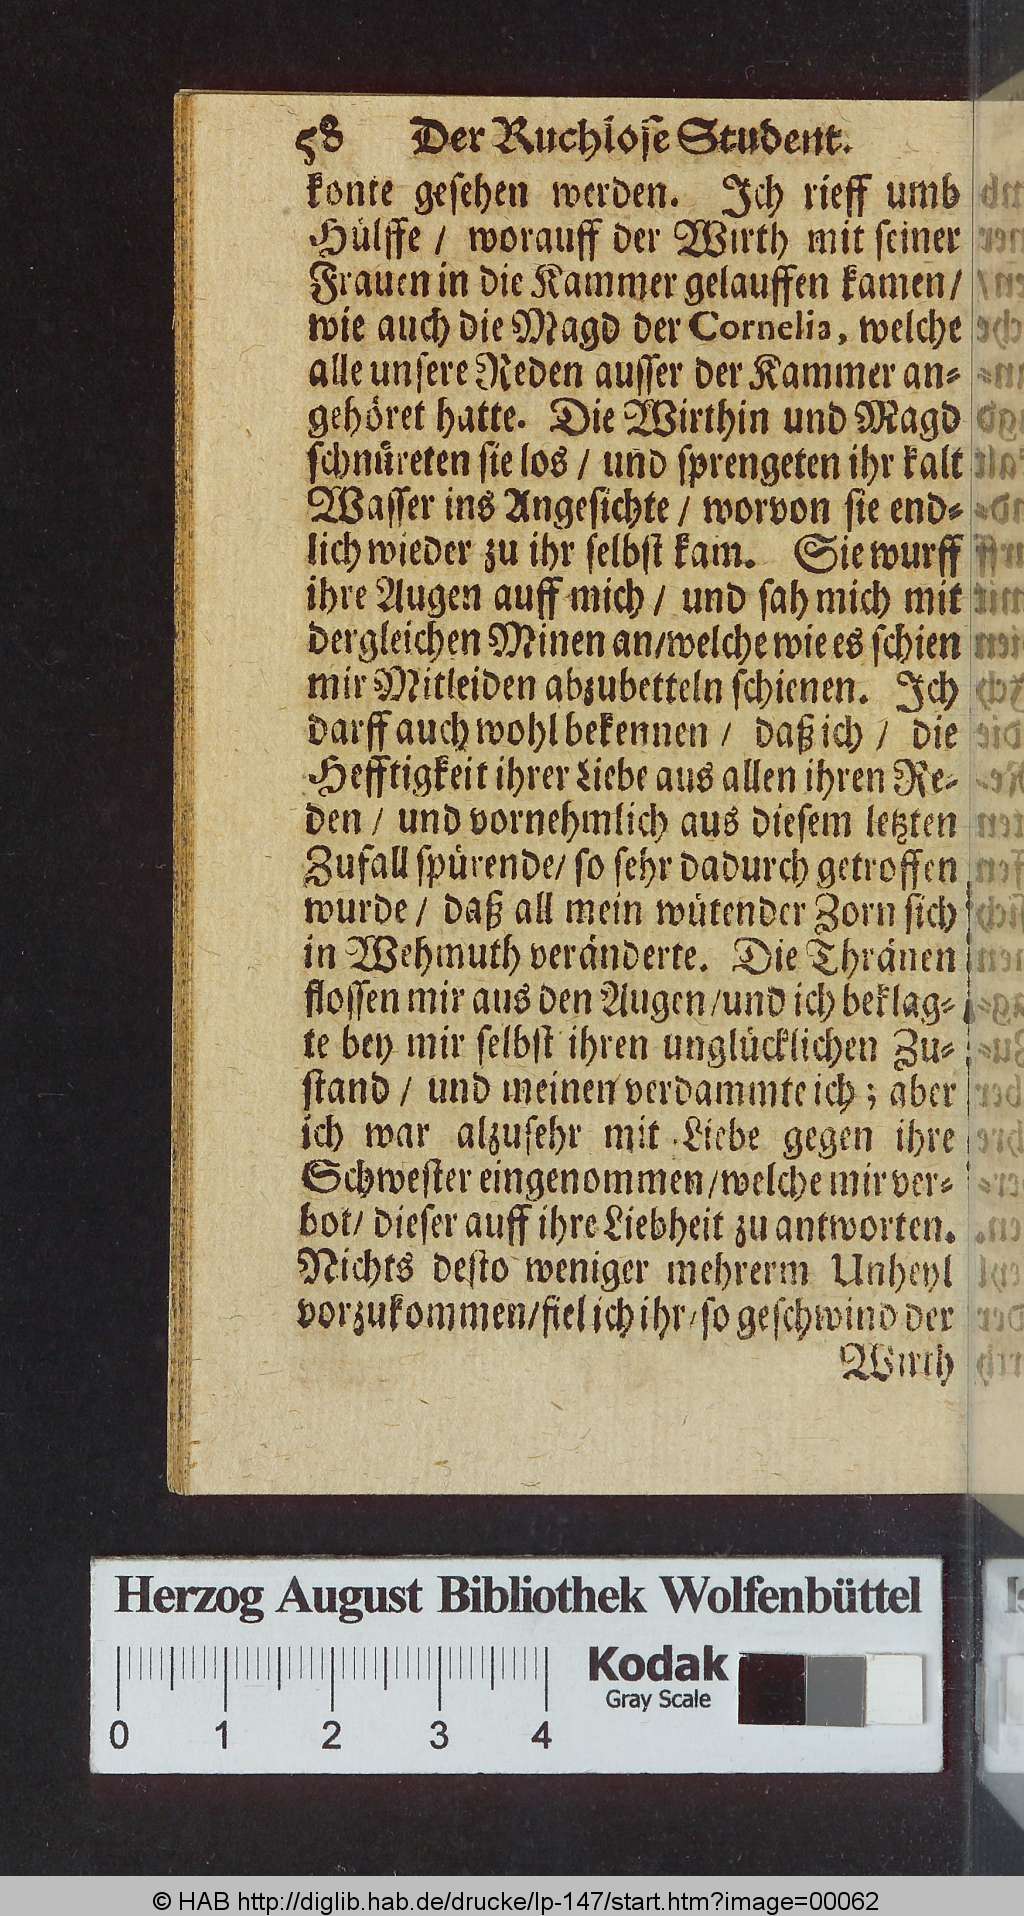 58 Der Ruchlose Student.
konte gesehen werden. Ich rieff umb
Hülffe / worauff der Wirth mit seiner
Frauen in die Kammer gelauffen kamen /
wie auch die Magd der Cornelia, welche
alle unsere Reden ausser der Kammer an-
gehöret hatte. Die Wirthin und Magd
schnüreten sie los / und sprengeten ihr kalt
Wasser ins Angesichte / worvon sie end-
lich wieder zu ihr selbst kam. Sie wurff
ihre Augen auff mich / und sah mich mit
dergleichen Minen an/welche wie es schien
mir Mitleiden abzubetteln schienen. Ich
darff auch wohl bekennen / daß ich / die
Hefftigkeit ihrer Liebe aus allen ihren Re-
den / und vornehmlich aus diesem letzten
Zufall spürende/ so sehr dadurch getroffen
wurde / daß all mein wütender Zorn sich
in Wehmuth veränderte. Die Thränen
flossen mir aus den Augen/und ich beklag-
te bey mir selbst ihren unglücklichen Zu-
stand / und meinen verdammte ich; aber
ich war alzusehr mit Liebe gegen ihre
Schwester eingenommen/welche mir ver-
bot/ dieser auff ihre Liebheit zu antworten.
Nichts desto weniger mehrerm Unheyl
vorzukommen/fiel ich ihr/so geschwind der
Wirth
Herzog August Bibliothek Wolfenbüttel
Kodak
Gray Scale
0 1 2 3 4
© HAB http://diglib.hab.de/drucke/lp-147/start.htm?image=00062